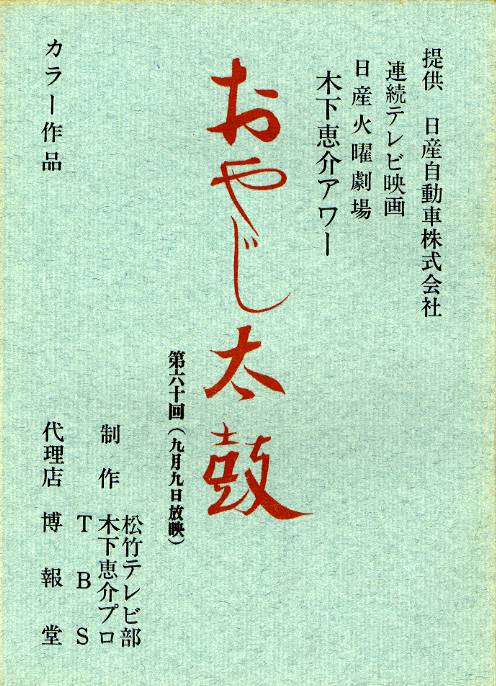 提供 日産自動車株式会社
連続テレビ映画
日産火曜劇場
木下恵介アワー
おやじ太鼓
第六十回(九月九日放映)
カラー作品
制作 松竹テレビ部
木下恵介プロ
TBS
代理店 博報堂